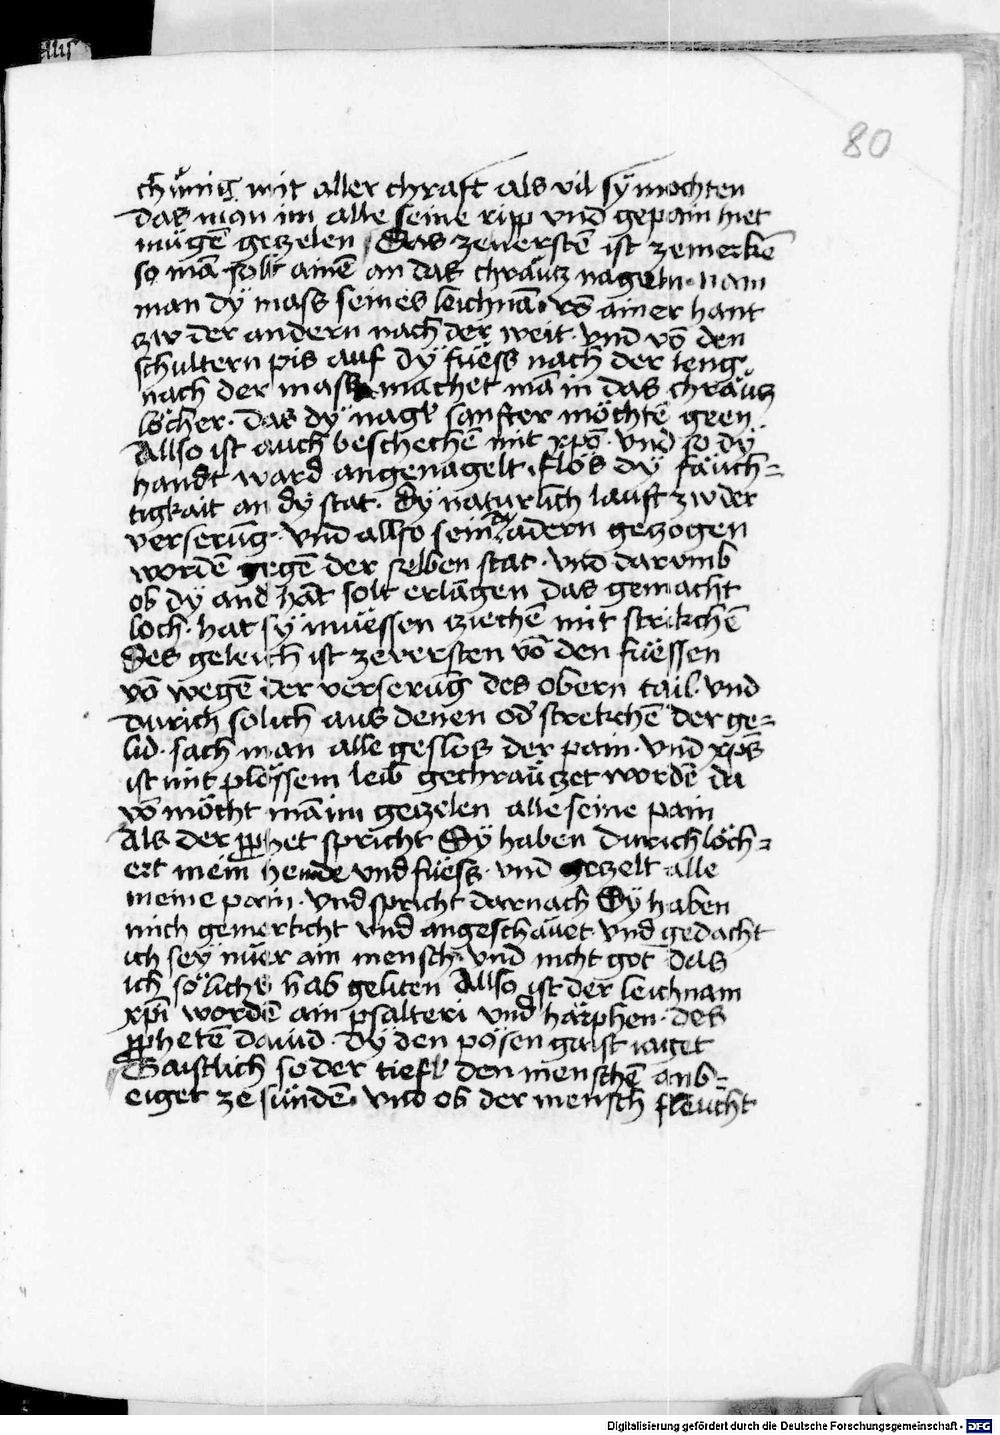 80
chünig mit aller chraft als vil sÿ mochten
das man im alle seine ripp vnd gepain hiet
mügē geczelen Das zeuerstē ist zemerkē
so mā solt ainē an das chräwcz nageln · nam
man dÿ mass seines leichnā · vō ainer hant
zw der andern nach der weit · vnd vō den
schultern pis auf dÿ füess nach der leng
nach der mass machet mā in das chräucz
löcher · das dÿ nagl sanfter möchtē geen
Allso ist auch beschechē mit xpō · vnd so dÿ
handt ward angenagelt · flos dÿ fäuch=
tigkait an dÿ stat · dÿ natürlich lauft zw der
verserūg · vnd allso sein dÿ adern geczogen
wordē gegē der selben stat · vnd darumb
ob dÿ and hāt solt erlāgen das gemacht
loch · hat sÿ müessen cziechē mit strikchē
Des geleich ist zeuersten vō den füessen
vō wegē der verserūg des obern tail · vnd
durich solich aus denen od strekchē der ge=
lid · sach man alle geslos der pain · vnd xp̄s
ist mit plössem leib gechräuczet wordē da
vō möcht mā im geczelen alle seine pain
Als der pphet spricht Sÿ haben durichlöch=
ert mein hende vnd füess · vnd geczelt alle
meine pain · vnd spricht darnach Sÿ haben
mich gemerkcht vnd angeschauet vnd gedacht
ich seÿ nuer ain mensch · vnd nicht got das
ich sölichs hab geliten Allso ist der leichnam
xp̄i wordē ain psalteri vnd härphen · des
pphetē dauid · dÿ den pösen gaist iaget
Gaistlich so der tiefl den menschē anb=
eiget ze sündē · vnd ob der mensch fleucht
Digitalisierung gefördert durch die Deutsche Forschungsgemeinschaft - DFG